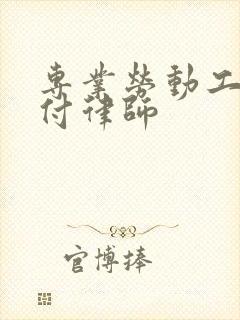 專業勞動工
付律師
官博捧